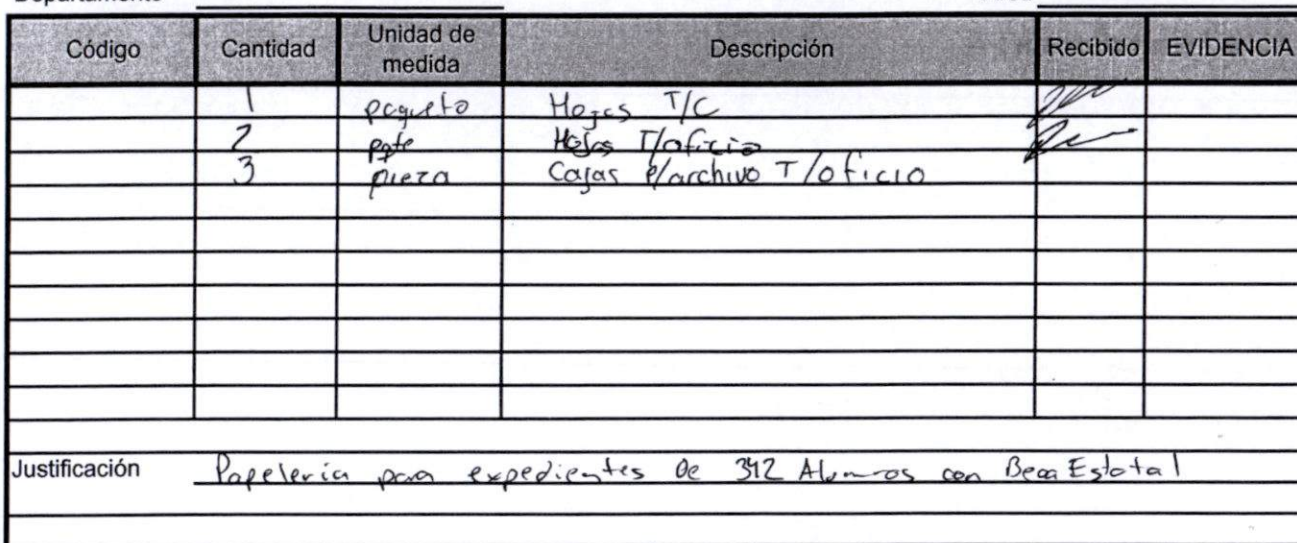 Código Cantidad Unidad de medida Descripción Recibido EVIDENCIA
1 paquete Hojas T/C
2 pqte Hojas T/oficio
3 pieza Cajas p/archivo T/oficio
Justificación Papelería para expedientes de 342 Alumnos con Beca Estatal